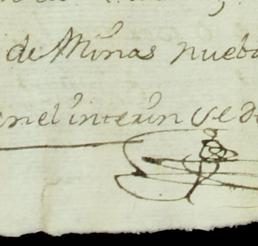 de Minas nueba
en el interin se d